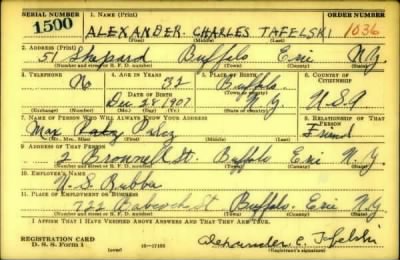 SERIAL NUMBER 1. NAME (Print) ORDER NUMBER
1500 ALEXANDER CHARLES TAFELSKI 1036
(First) (Middle) (Last)
2. ADDRESS (Print)
51 Shepard Buffalo Erie N.Y.
(Number and street or R. F. D. number) (Town) (County) (State)
3. TELEPHONE 4. AGE IN YEARS 5. PLACE OF BIRTH 6. COUNTRY OF CITIZENSHIP
No 32 Buffalo
DATE OF BIRTH (Town or county)
Dec 28 1907 N.Y. U.S.A
(Exchange) (Number) (Mo.) (Day) (Yr.) (State or country)
7. NAME OF PERSON WHO WILL ALWAYS KNOW YOUR ADDRESS 8. RELATIONSHIP OF THAT PERSON
Max Palcz Friend
(Mr., Mrs., Miss) (First) (Middle) (Last)
9. ADDRESS OF THAT PERSON
2 Brownell St. Buffalo Erie N.Y.
(Number and street or R. F. D. number) (Town) (County) (State)
10. EMPLOYER'S NAME
U.S. Rubber
11. PLACE OF EMPLOYMENT OR BUSINESS
722 Babcock St Buffalo Erie N.Y.
(Number and street or R. F. D. number) (Town) (County) (State)
I AFFIRM THAT I HAVE VERIFIED ABOVE ANSWERS AND THAT THEY ARE TRUE.
REGISTRATION CARD
D. S. S. Form 1 (over) 16—17105 Alexander C. Tafelski
(Registrant's signature)